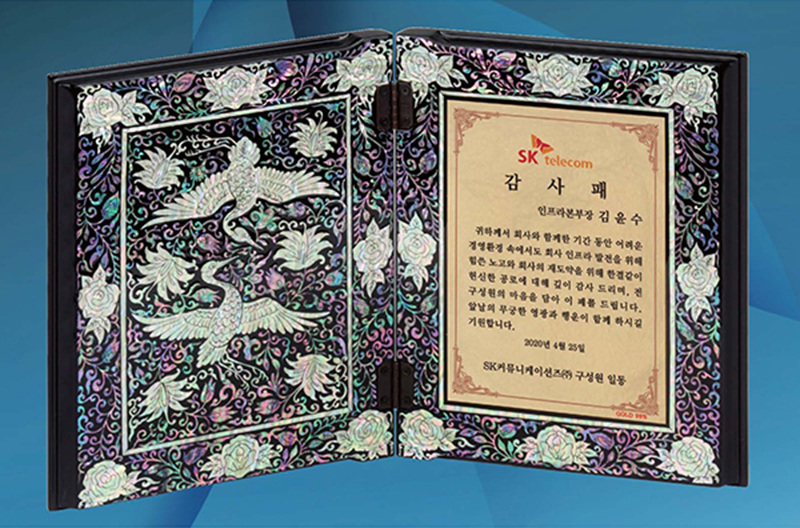 SK telecom
감 사 패
인프라본부장 김윤수
귀하께서 회사와 함께한 기간 동안 어려운
경영환경 속에서도 회사 인프라 발전을 위해
힘쓴 노고와 회사의 재도약을 위해 한결같이
헌신한 공로에 대해 깊이 감사 드리며, 전
구성원의 마음을 담아 이 패를 드립니다.
앞날의 무궁한 영광과 행운이 함께 하시길
기원합니다.
2020년 4월 25일
SK커뮤니케이션즈㈜ 구성원 일동
GOLD 99%